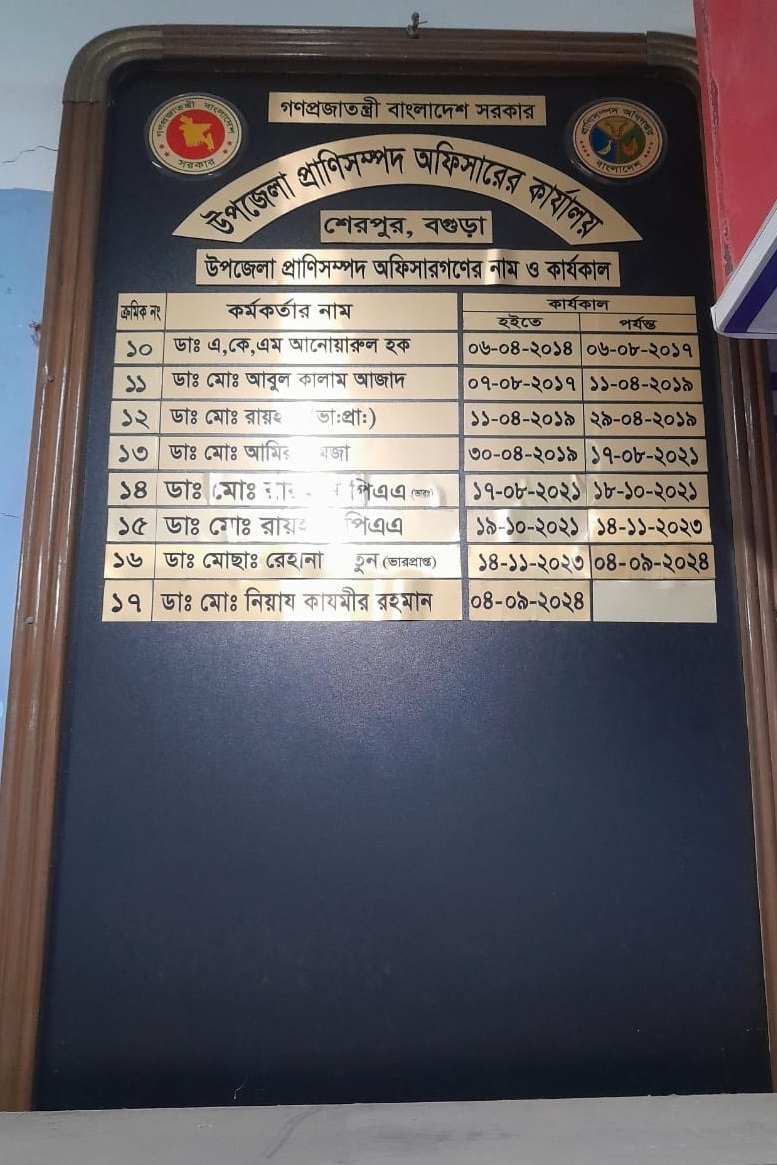 গণপ্রজাতন্ত্রী বাংলাদেশ সরকার
গণপ্রজাতন্ত্রী বাংলাদেশ
সরকার
প্রাণিসম্পদ অধিদপ্তর
বাংলাদেশ
উপজেলা প্রাণিসম্পদ অফিসারের কার্যালয়
শেরপুর, বগুড়া
উপজেলা প্রাণিসম্পদ অফিসারগণের নাম ও কার্যকাল
ক্রমিক নং কর্মকর্তার নাম কার্যকাল
হইতে পর্যন্ত
১০ ডাঃ এ,কে,এম আনোয়ারুল হক ০৬-০৪-২০১৪ ০৬-০৮-২০১৭
১১ ডাঃ মোঃ আবুল কালাম আজাদ ০৭-০৮-২০১৭ ১১-০৪-২০১৯
১২ ডাঃ মোঃ (ভা:প্রা:) ১১-০৪-২০১৯ ২৯-০৪-২০১৯
১৩ ডাঃ মোঃ ৩০-০৪-২০১৯ ১৭-০৮-২০২১
১৪ ডাঃ মোঃ পিএএ (ভারঃ) ১৭-০৮-২০২১ ১৮-১০-২০২১
১৫ ডাঃ মোঃ পিএএ ১৯-১০-২০২১ ১৪-১১-২০২৩
১৬ ডাঃ মোছাঃ রেহানা (ভারপ্রাপ্ত) ১৪-১১-২০২৩ ০৪-০৯-২০২৪
১৭ ডাঃ মোঃ নিয়ায কাযমীর রহমান ০৪-০৯-২০২৪